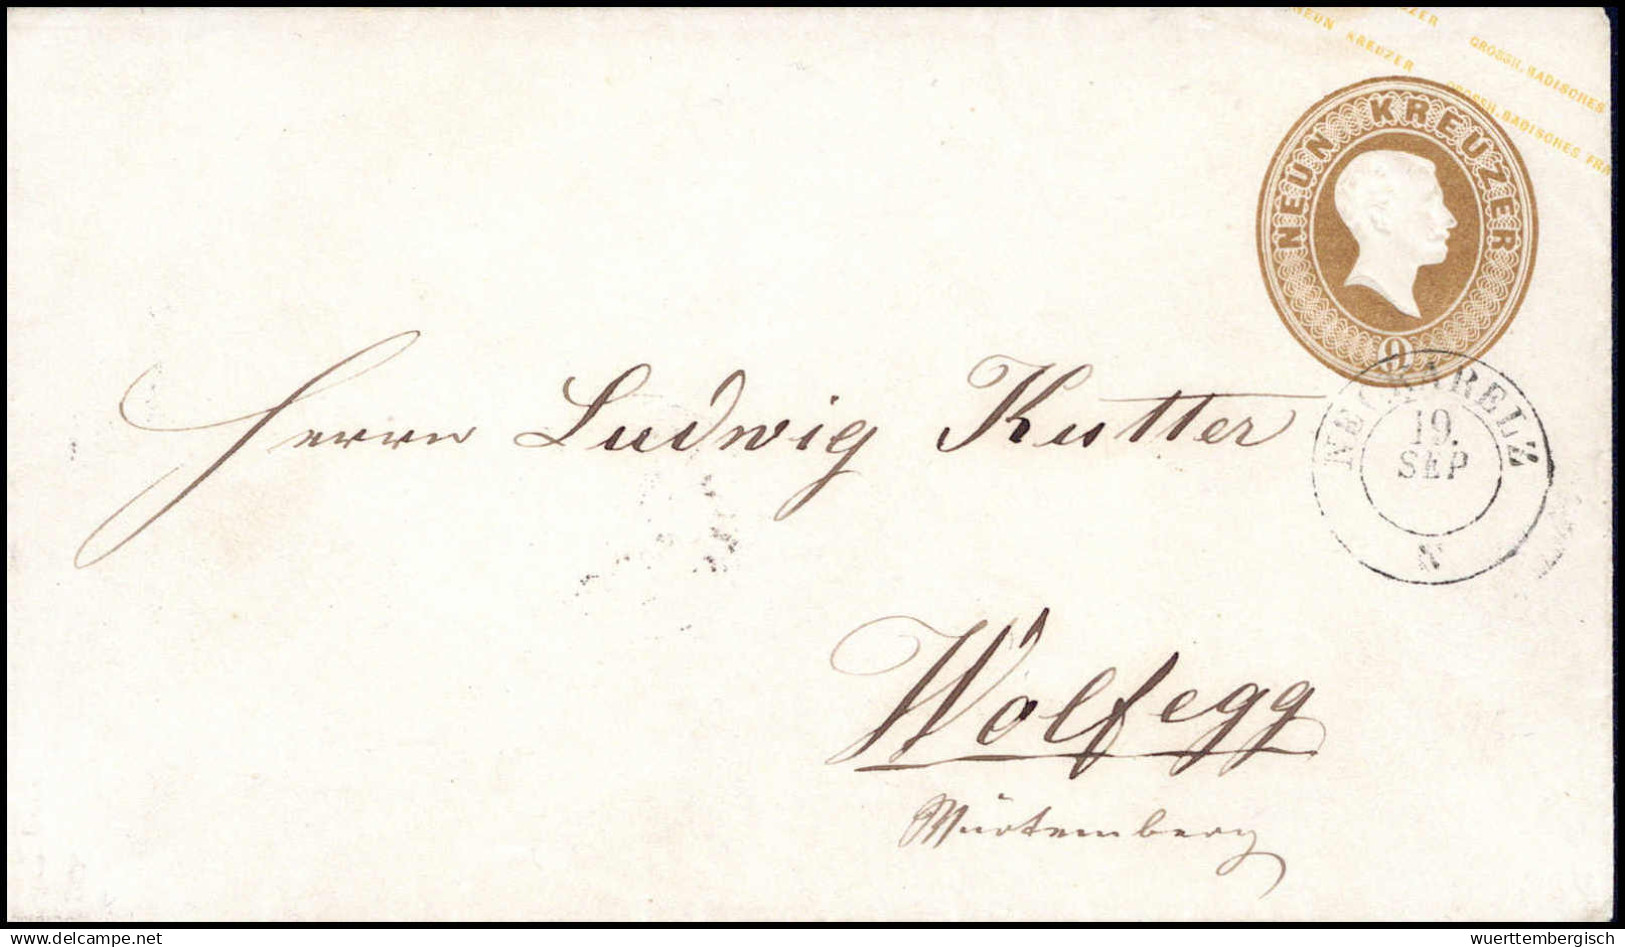 ZER
NEUN KREUZER
GROSSH. BADISCHES
GROSSH. BADISCHES FRA
NEUN KREUZER
9
NECKARELZ
19.
SEP
Herrn Ludwig Kutter
Wolfegg
Würtemberg
www.delcampe.net
wuerttembergisch